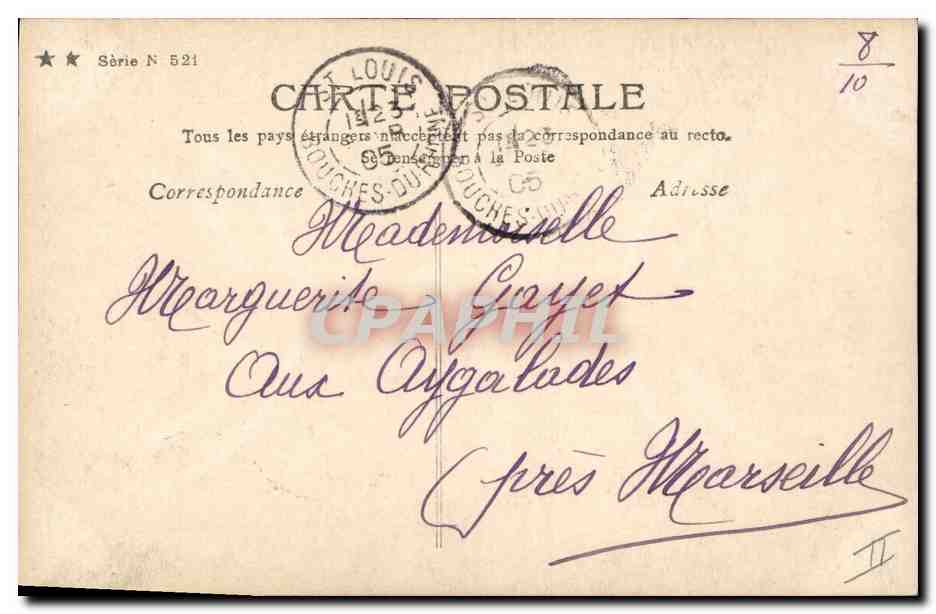 ★★ Série N 521
8/10
CARTE POSTALE
Tous les pays étrangers n'acceptent pas la correspondance au recto.
Se renseigner à la Poste
Correspondance Adresse
ST LOUIS
23
05
BOUCHES-DU-RHONE
05
BOUCHES-DU
Mademoiselle
Marguerite Gayet
CPAPHIL
aux Aygalades
(près Marseille
II